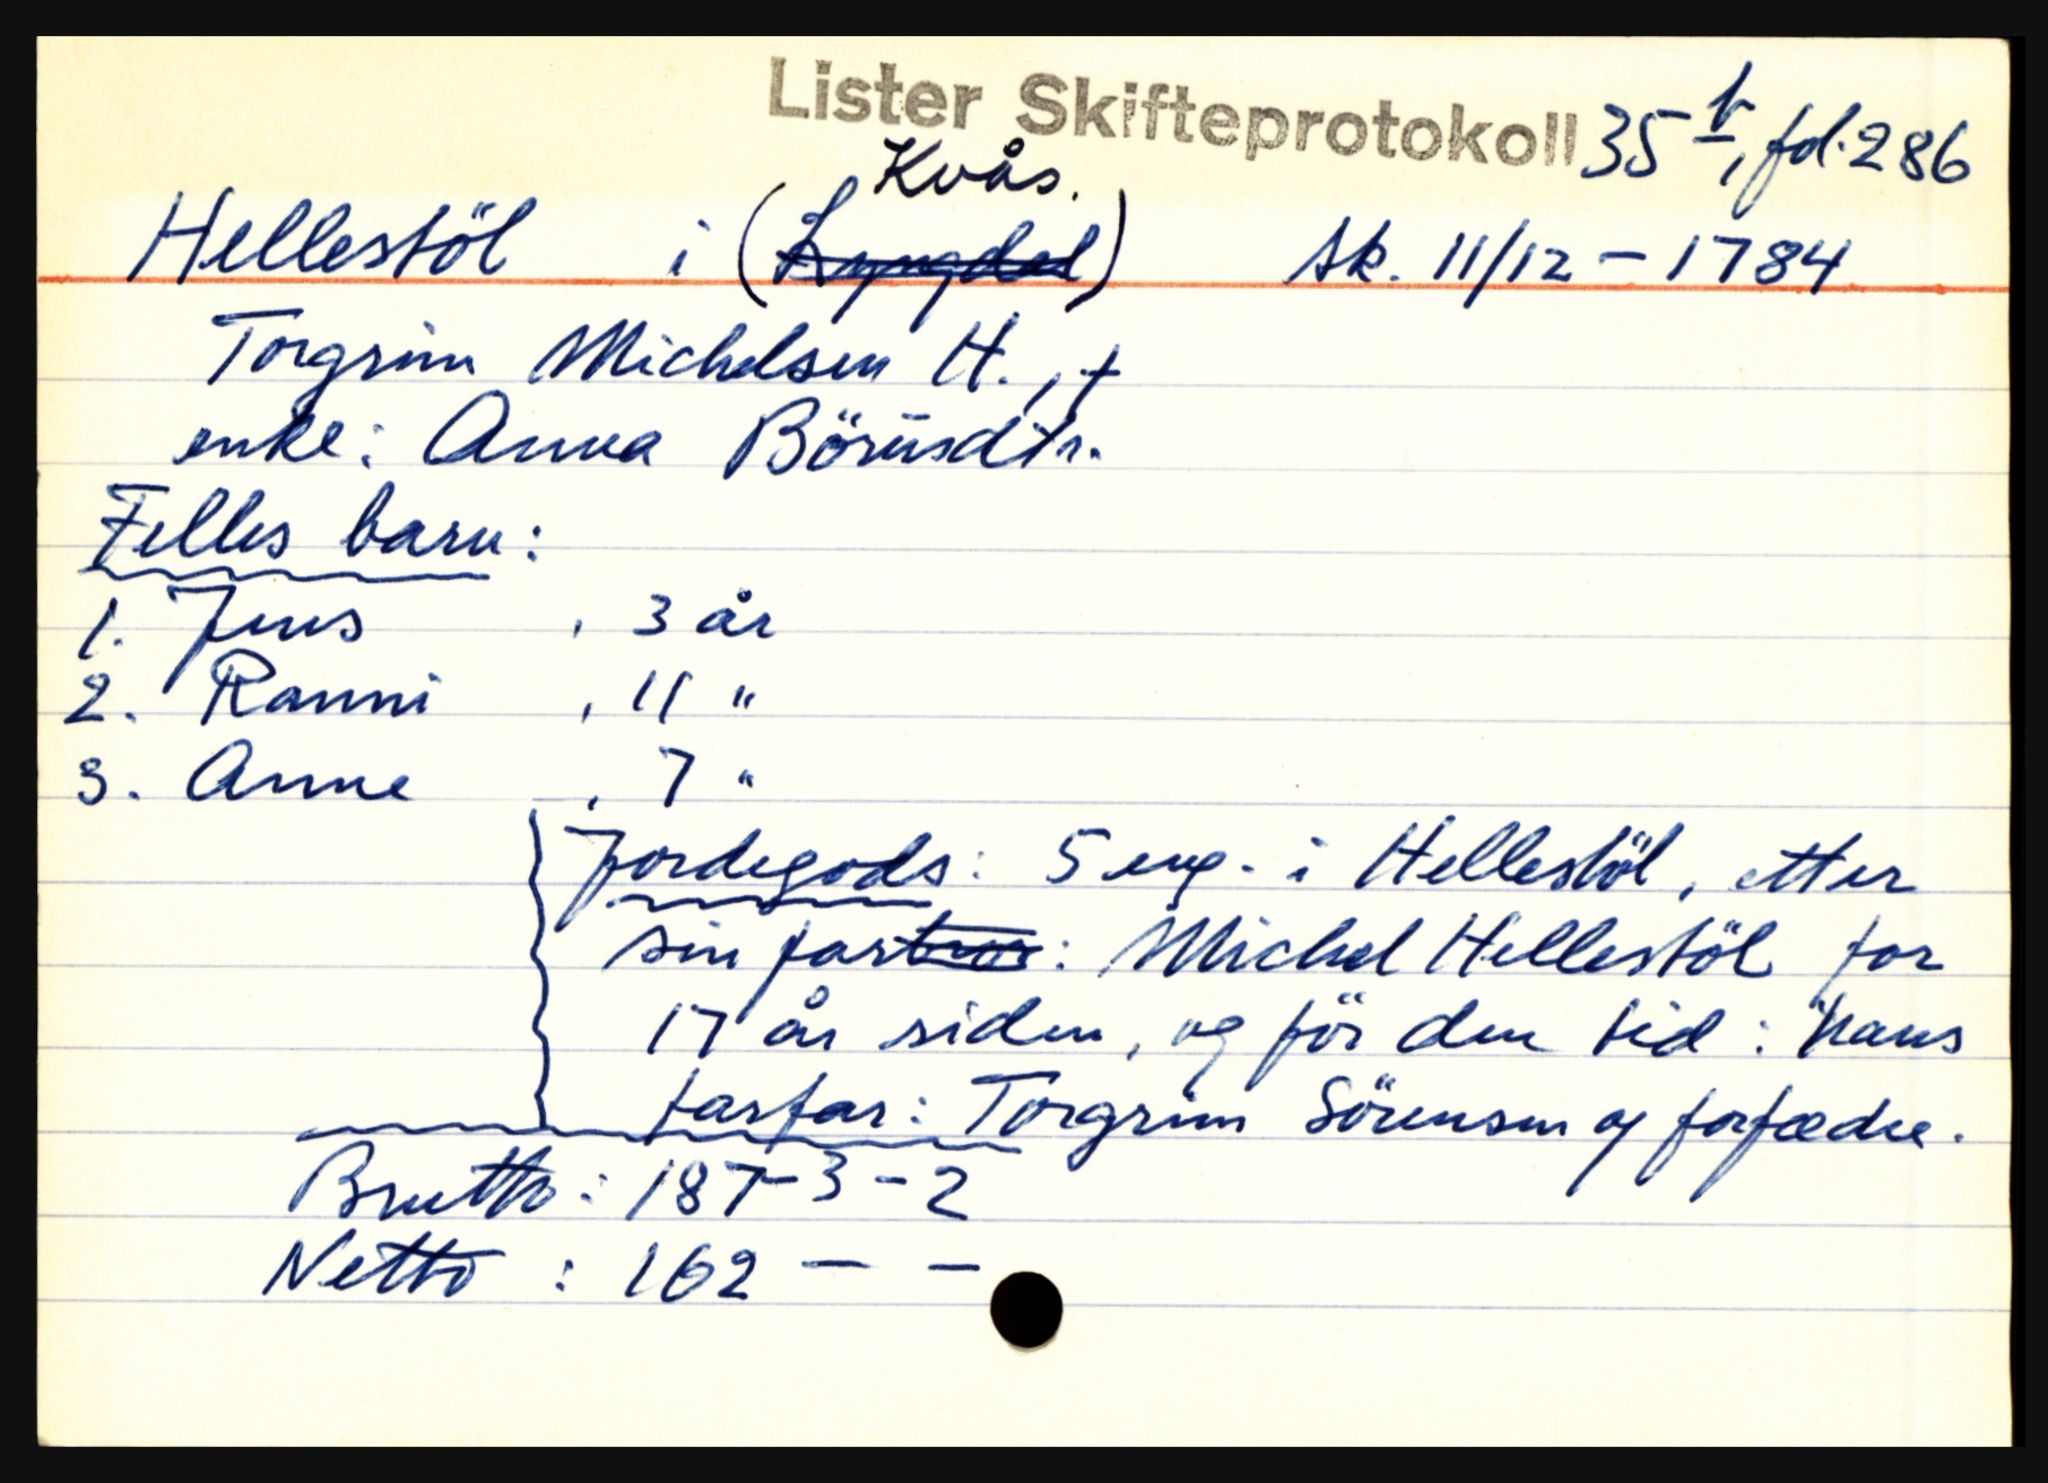 Lister Skifteprotokoll 35 b, fol. 286
Kvås.
Hellestöl i (Lyngdal) Sk. 11/12 - 1784
Torgrim Michelsen H., †
enke: Anna Börusdtr.
Felles barn:
1. Jens , 3 år
2. Ranni , 11 "
3. Anne , 7 "
Jordegods: 5 eng. i Hellestöl, etter
sin far: Michel Hellestöl for
17 år siden, og för den tid: hans
farfar: Torgrim Sörensen og forfædre.
Brutto: 187-3-2
Netto : 162 - -